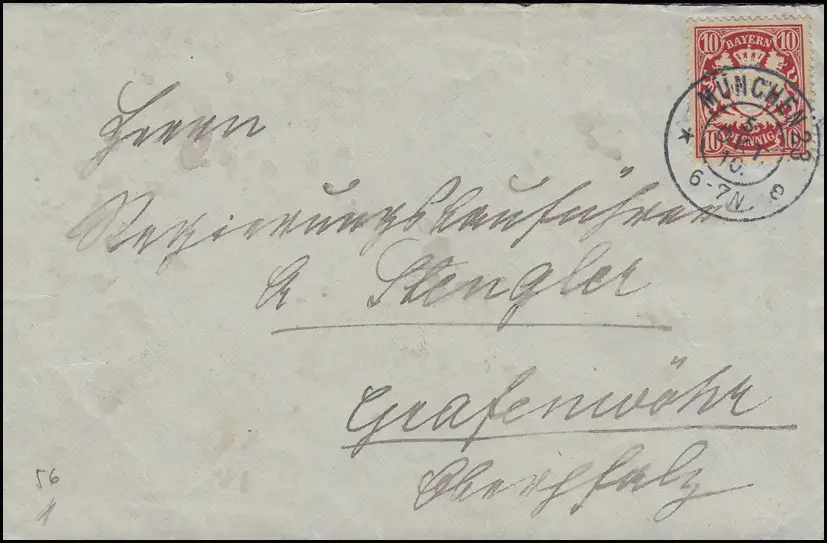 10 BAYERN 10
10 PFENNIG 10
MÜNCHEN 23
5
10.
6-7N.
Herrn
Regierungsbauführer
A. Stengler
Grafenwöhr
Oberpfalz
56